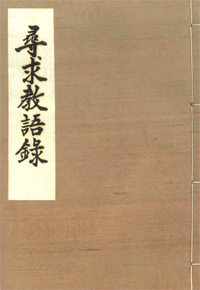 尋求教語錄